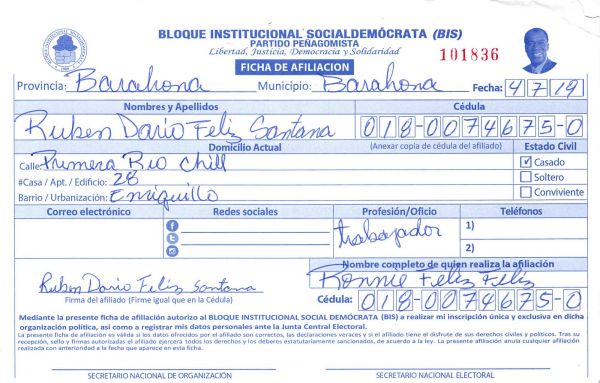 BLOQUE INSTITUCIONAL SOCIALDEMÓCRATA (BIS)
PARTIDO PEÑAGOMISTA
Libertad, Justicia, Democracia y Solidaridad
101836
FICHA DE AFILIACION
Provincia: Barahona Municipio: Barahona Fecha: 4/7/19
Nombres y Apellidos Cédula
Ruben Dario Feliz Santana 018-0074675-0
Domicilio Actual (Anexar copia de cédula del afiliado) Estado Civil
Calle: Primera Rio Chill Casado
#Casa / Apt. / Edificio: 28 Soltero
Barrio / Urbanización: Enriquillo Conviviente
Correo electrónico Redes sociales Profesión/Oficio Teléfonos
trabajador 1)
2)
Nombre completo de quien realiza la afiliación
Ruben Dario Feliz Santana Ronnie Feliz Feliz
Firma del afiliado (Firme igual que en la Cédula) Cédula: 018-0074675-0
Mediante la presente ficha de afiliación autorizo al BLOQUE INSTITUCIONAL SOCIAL DEMÓCRATA (BIS) a realizar mi inscripción única y exclusiva en dicha
organización política, así como a registrar mis datos personales ante la Junta Central Electoral.
La presente ficha de afiliación es válida si los datos ofrecidos por el afiliado son correctos, las declaraciones veraces y si el afiliado tiene el disfrute de sus derechos civiles y políticos. Tras su
recepción, sello y firmas autorizadas el afiliado ejercerá todos los derechos y los deberes estatutariamente sancionados, de acuerdo a la ley. La presente afiliación anula cualquier afiliación
realizada con anterioridad a la fecha que aparece en esta ficha.
SECRETARIO NACIONAL DE ORGANIZACIÓN SECRETARIO NACIONAL ELECTORAL